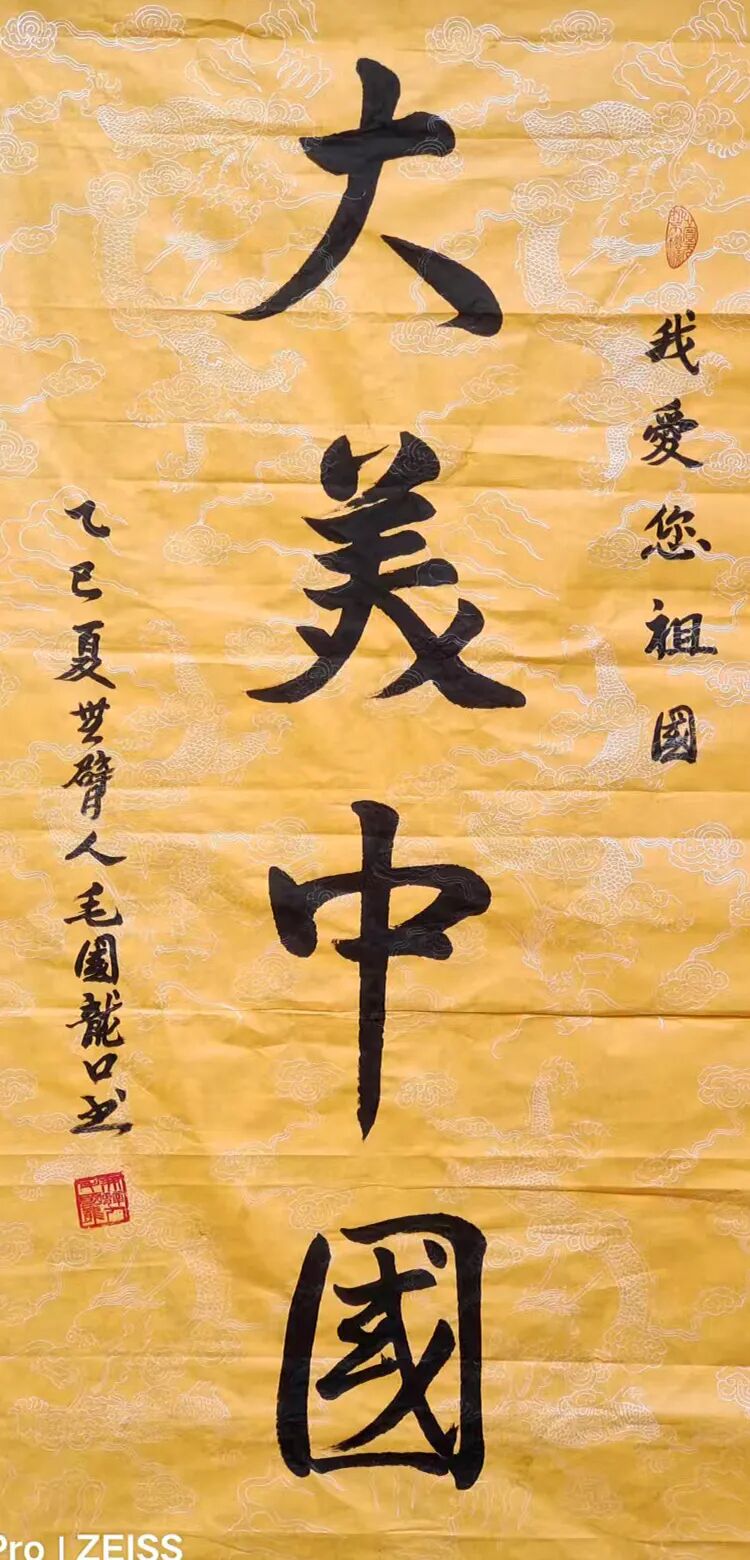 我愛您祖國
大美中國
乙巳夏無臂人毛國龍口书
Pro | ZEISS